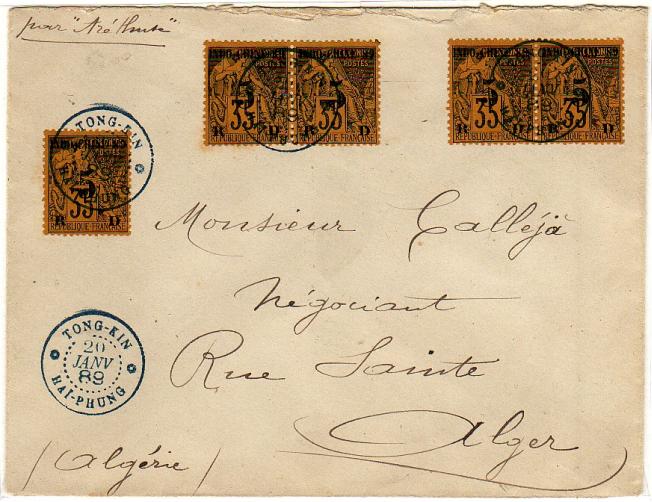 par "Aréthuse"
INDO-CHINE
5
POSTES
35
R D
REPUBLIQUE FRANÇAISE
INDO-CHINE
5
POSTES
35
R D
REPUBLIQUE FRANÇAISE
INDO-CHINE
5
POSTES
35
R D
REPUBLIQUE FRANÇAISE
INDO-CHINE
5
POSTES
35
R D
REPUBLIQUE FRANÇAISE
TONG-KIN
5
35
R D
REPUBLIQUE FRANÇAISE
Monsieur Calléjà
Négociant
TONG-KIN
20
JANV
89
HAI-PHUNG
Rue Sainte
Alger
(Algérie)